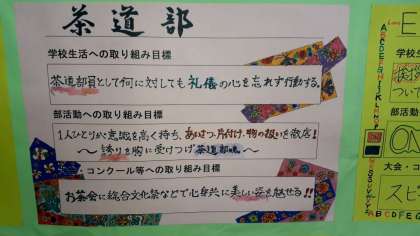 茶道部
学校生活への取り組み目標
茶道部員として何に対しても礼儀の心を忘れず行動する。
部活動への取り組み目標
1人ひとりが意識を高く持ち、あいさつ・片付け・物の扱いを徹底!
〜誇りを胸に受けつげ茶道部魂〜
コンクール等への取り組み目標
お茶会に総合文化祭などで心身共に美しい姿を魅せる!!
学校生
ついて
部活
大会・コ
スピ